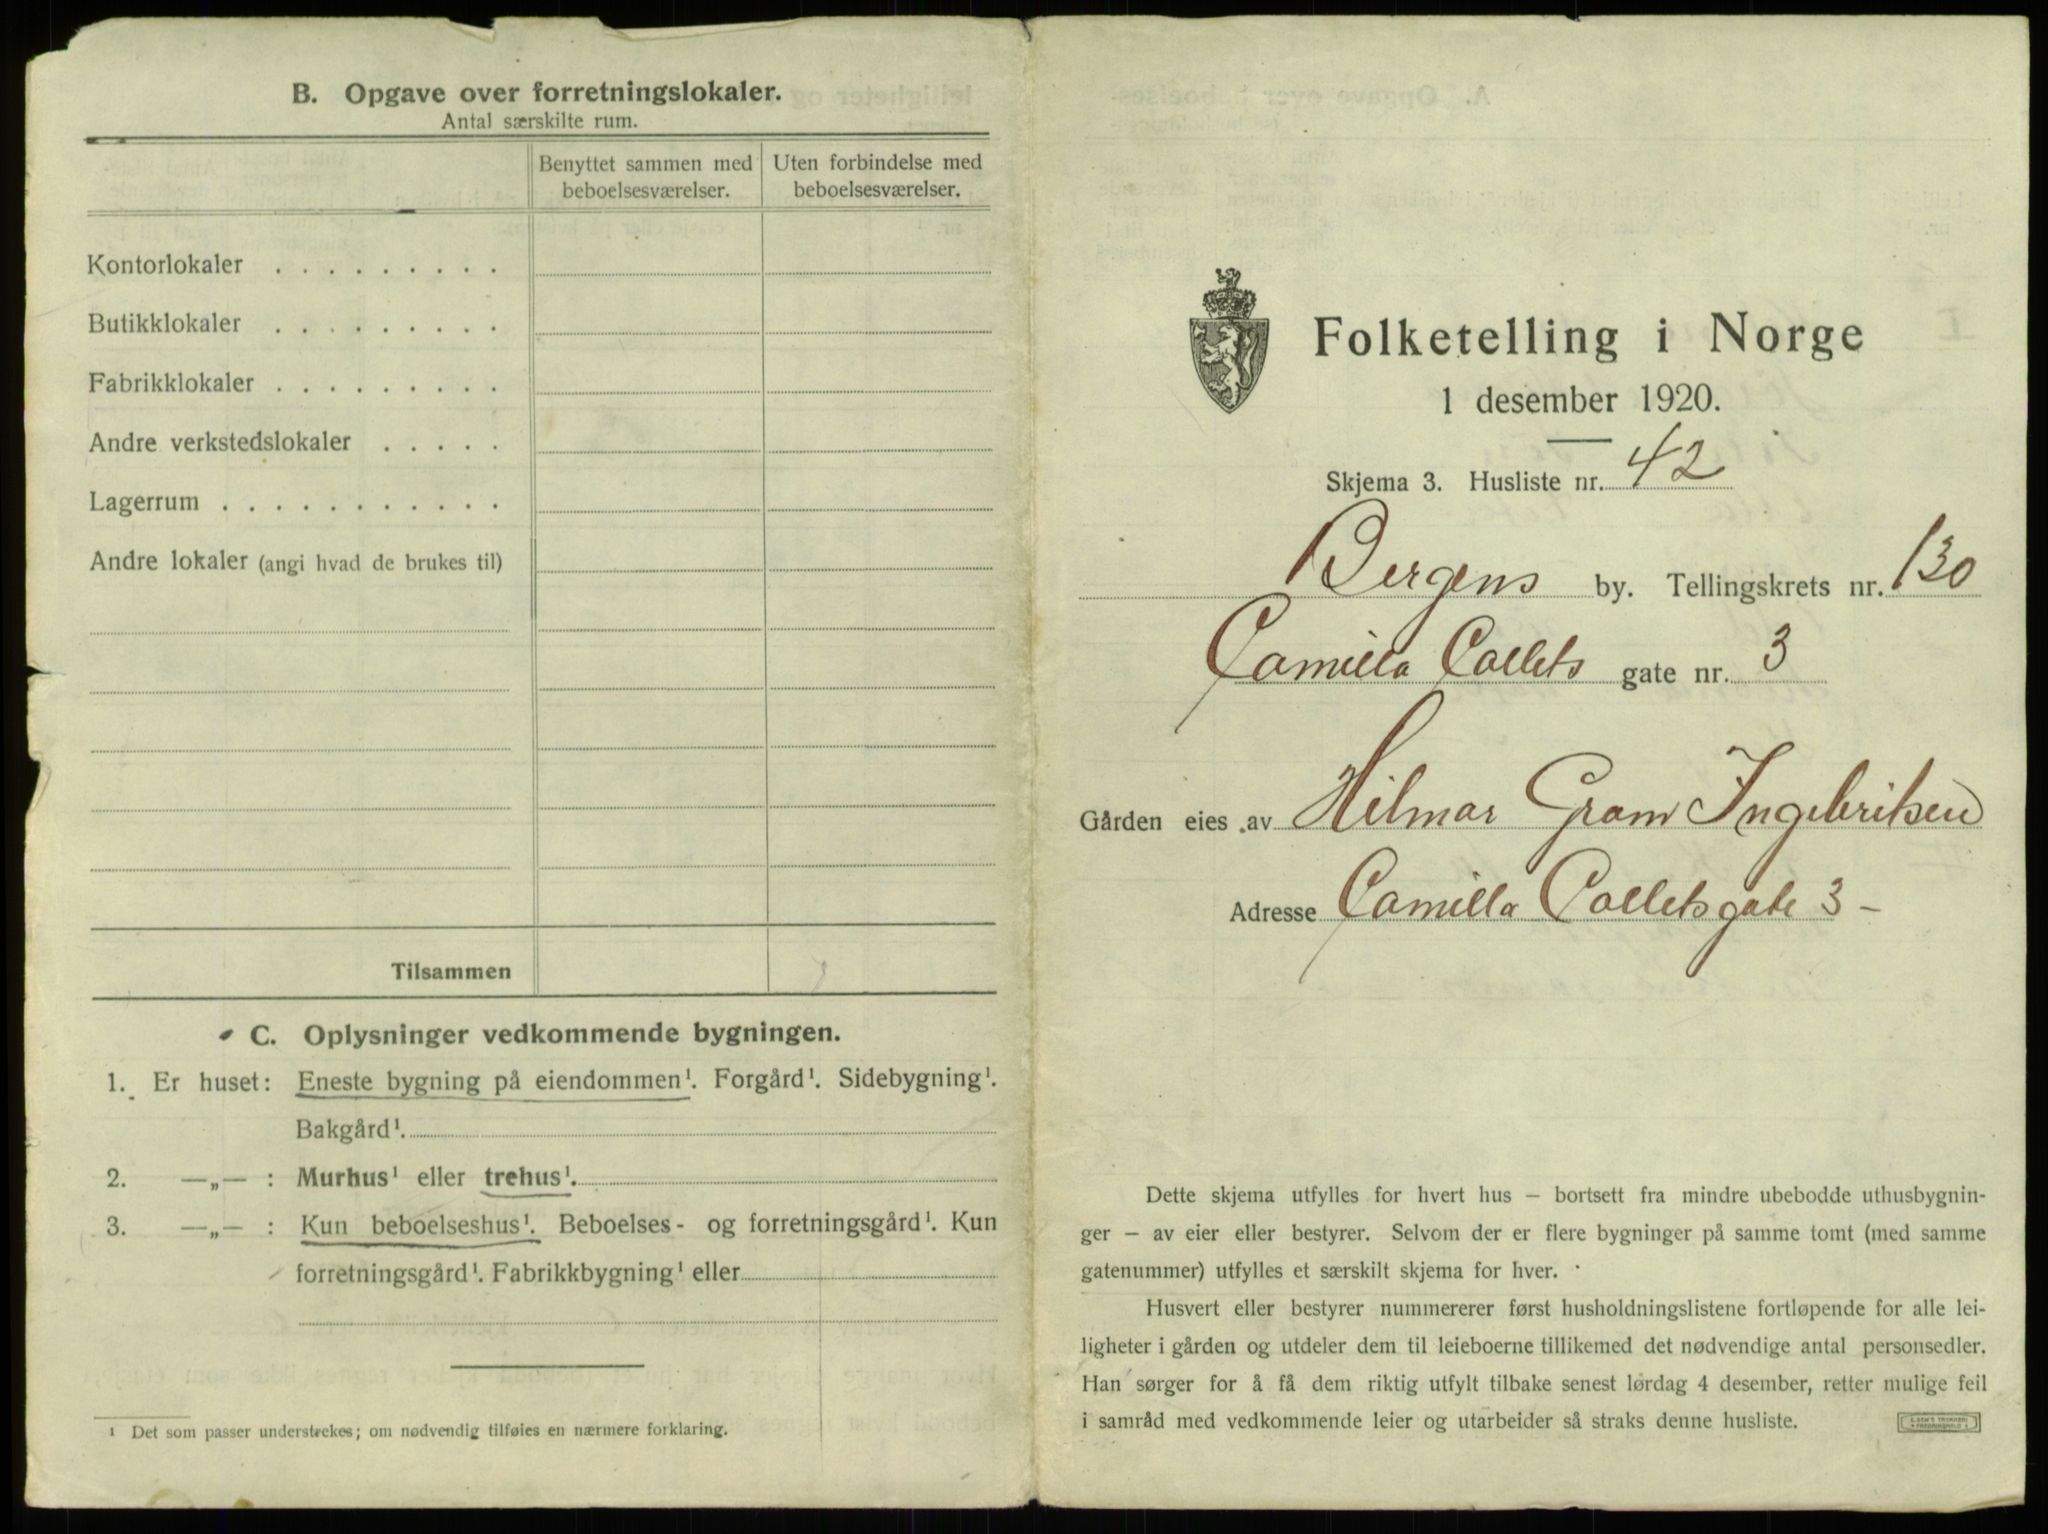 B. Opgave over forretningslokaler.
Antal særskilte rum.
Benyttet sammen med beboelsesværelser.
Uten forbindelse med beboelsesværelser.
Kontorlokaler . . . . . . . . .
Butikklokaler . . . . . . . . .
Fabrikklokaler . . . . . . . . .
Andre verkstedslokaler . . . . .
Lagerrum . . . . . . . . . . .
Andre lokaler (angi hvad de brukes til)
Tilsammen
C. Oplysninger vedkommende bygningen.
1. Er huset: Eneste bygning på eiendommen¹. Forgård¹. Sidebygning¹.
Bakgård¹.
2. —„— : Murhus¹ eller trehus¹.
3. —„— : Kun beboelseshus¹. Beboelses- og forretningsgård¹. Kun
forretningsgård¹. Fabrikkbygning¹ eller
¹ Det som passer understrekes; om nødvendig tilføies en nærmere forklaring.
Folketelling i Norge
1 desember 1920.
Skjema 3. Husliste nr. 42
Bergens by. Tellingskrets nr. 130
Camilla Collets gate nr. 3
Gården eies av Hilmar Gram Ingebritsen
Adresse Camilla Colletsgate 3 –
Dette skjema utfylles for hvert hus – bortsett fra mindre ubebodde uthusbygnin-
ger – av eier eller bestyrer. Selvom der er flere bygninger på samme tomt (med samme
gatenummer) utfylles et særskilt skjema for hver.
Husvert eller bestyrer nummererer først husholdningslistene fortløpende for alle lei-
ligheter i gården og utdeler dem til leieboerne tillikemed det nødvendige antal personsedler.
Han sørger for å få dem riktig utfylt tilbake senest lørdag 4 desember, retter mulige feil
i samråd med vedkommende leier og utarbeider så straks denne husliste.